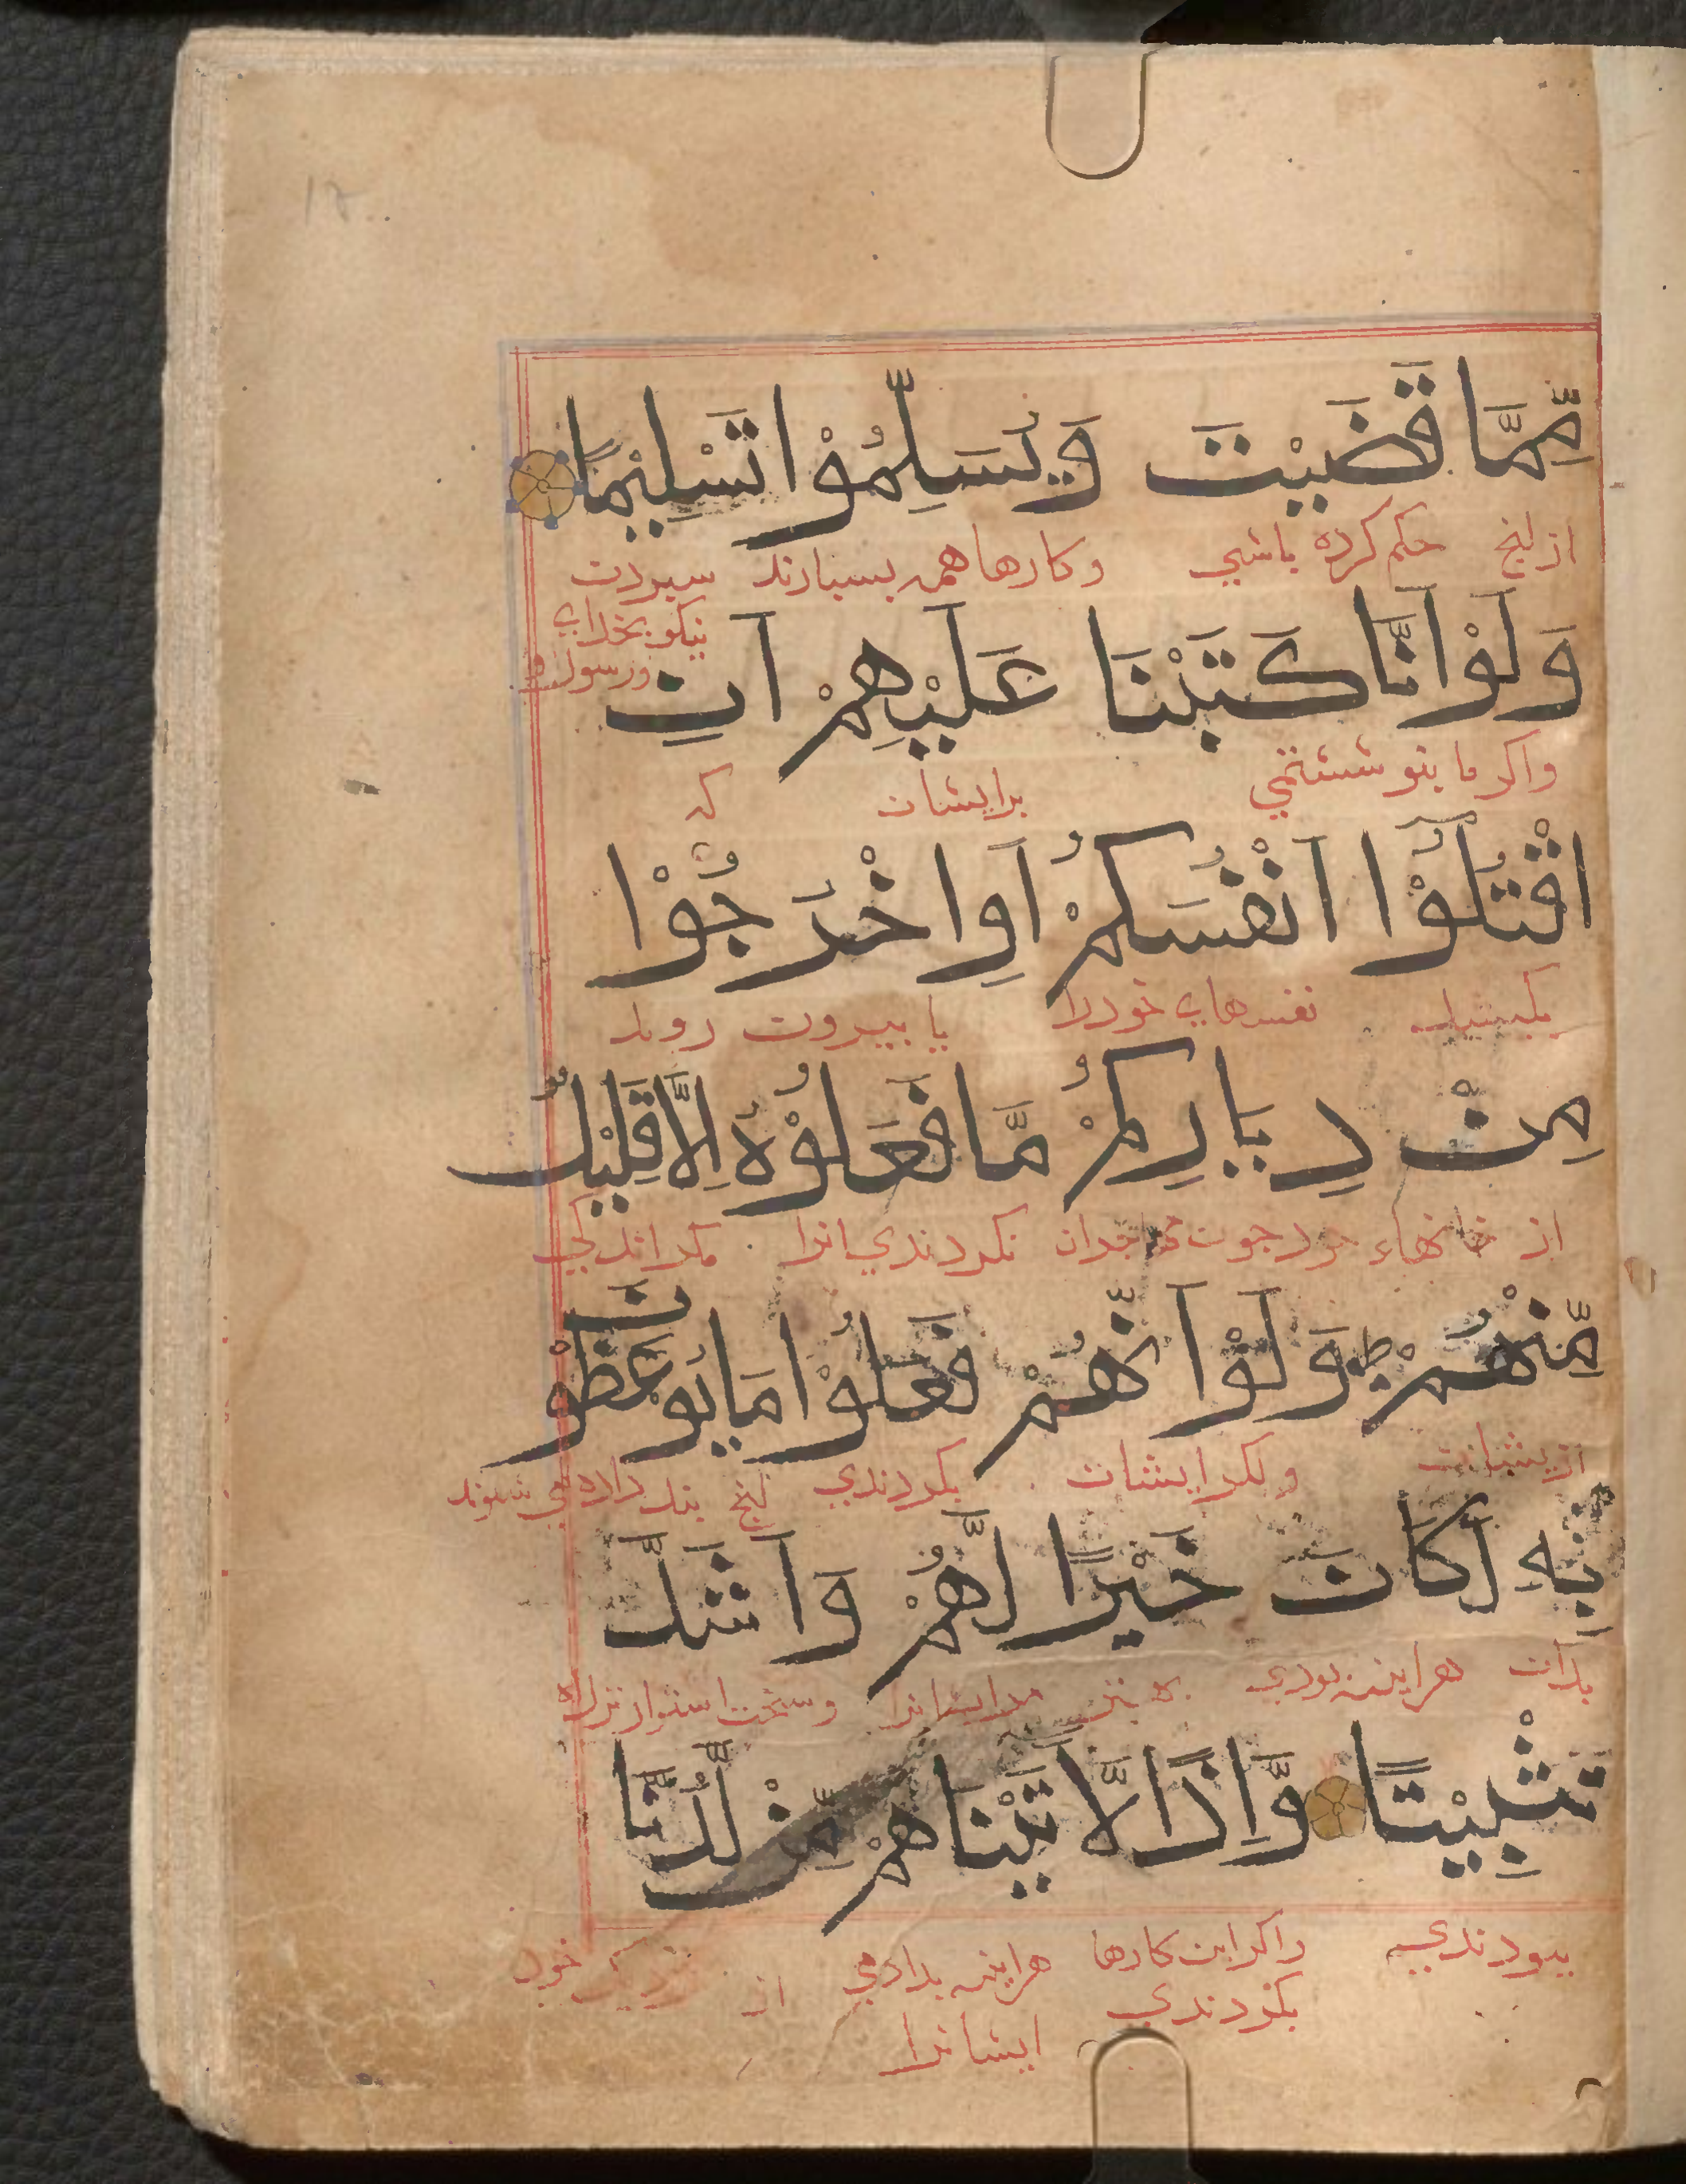 مِّمَّا قَضَيْتَ وَيُسَلِّمُوْا تَسْلِيْمًا
از انچ حكم كرده باشي وكارها همه بسپارند سپردن
نيكو بخداي
ورسول
وَلَوْ اَنَّا كَتَبْنَا عَلَيْهِمْ اَنِ
واكر ما بنوشتمي برايشان كه
اقْتُلُوْا اَنْفُسَكُمْ اَوِ اخْرُجُوْا
بكشيد نفسهاي خودرا يا بيرون رويد
مِنْ دِيَارِكُمْ مَّا فَعَلُوْهُ اِلَّا قَلِيْلٌ
از خانهاء خود چون نكردندي انرا مكر اندكي
مِّنْهُمْ ط وَلَوْ اَنَّهُمْ فَعَلُوْا مَا يُوْعَظُوْنَ
ازيشان ولكر ايشان بكردندي انچ پند داده مي شوند
بِهٖ لَكَانَ خَيْرًا لَّهُمْ وَاَشَدَّ
بدان هراينه بودي بهتر مرايشانرا وسخت استوارتر
تَثْبِيْتًا وَّاِذًا لَّاٰتَيْنَاهُمْ مِّنْ لَّدُنَّا
ببودندي واكر اين كارها هراينه بدادمي از نزديك خود
بكردندي
ايشانرا